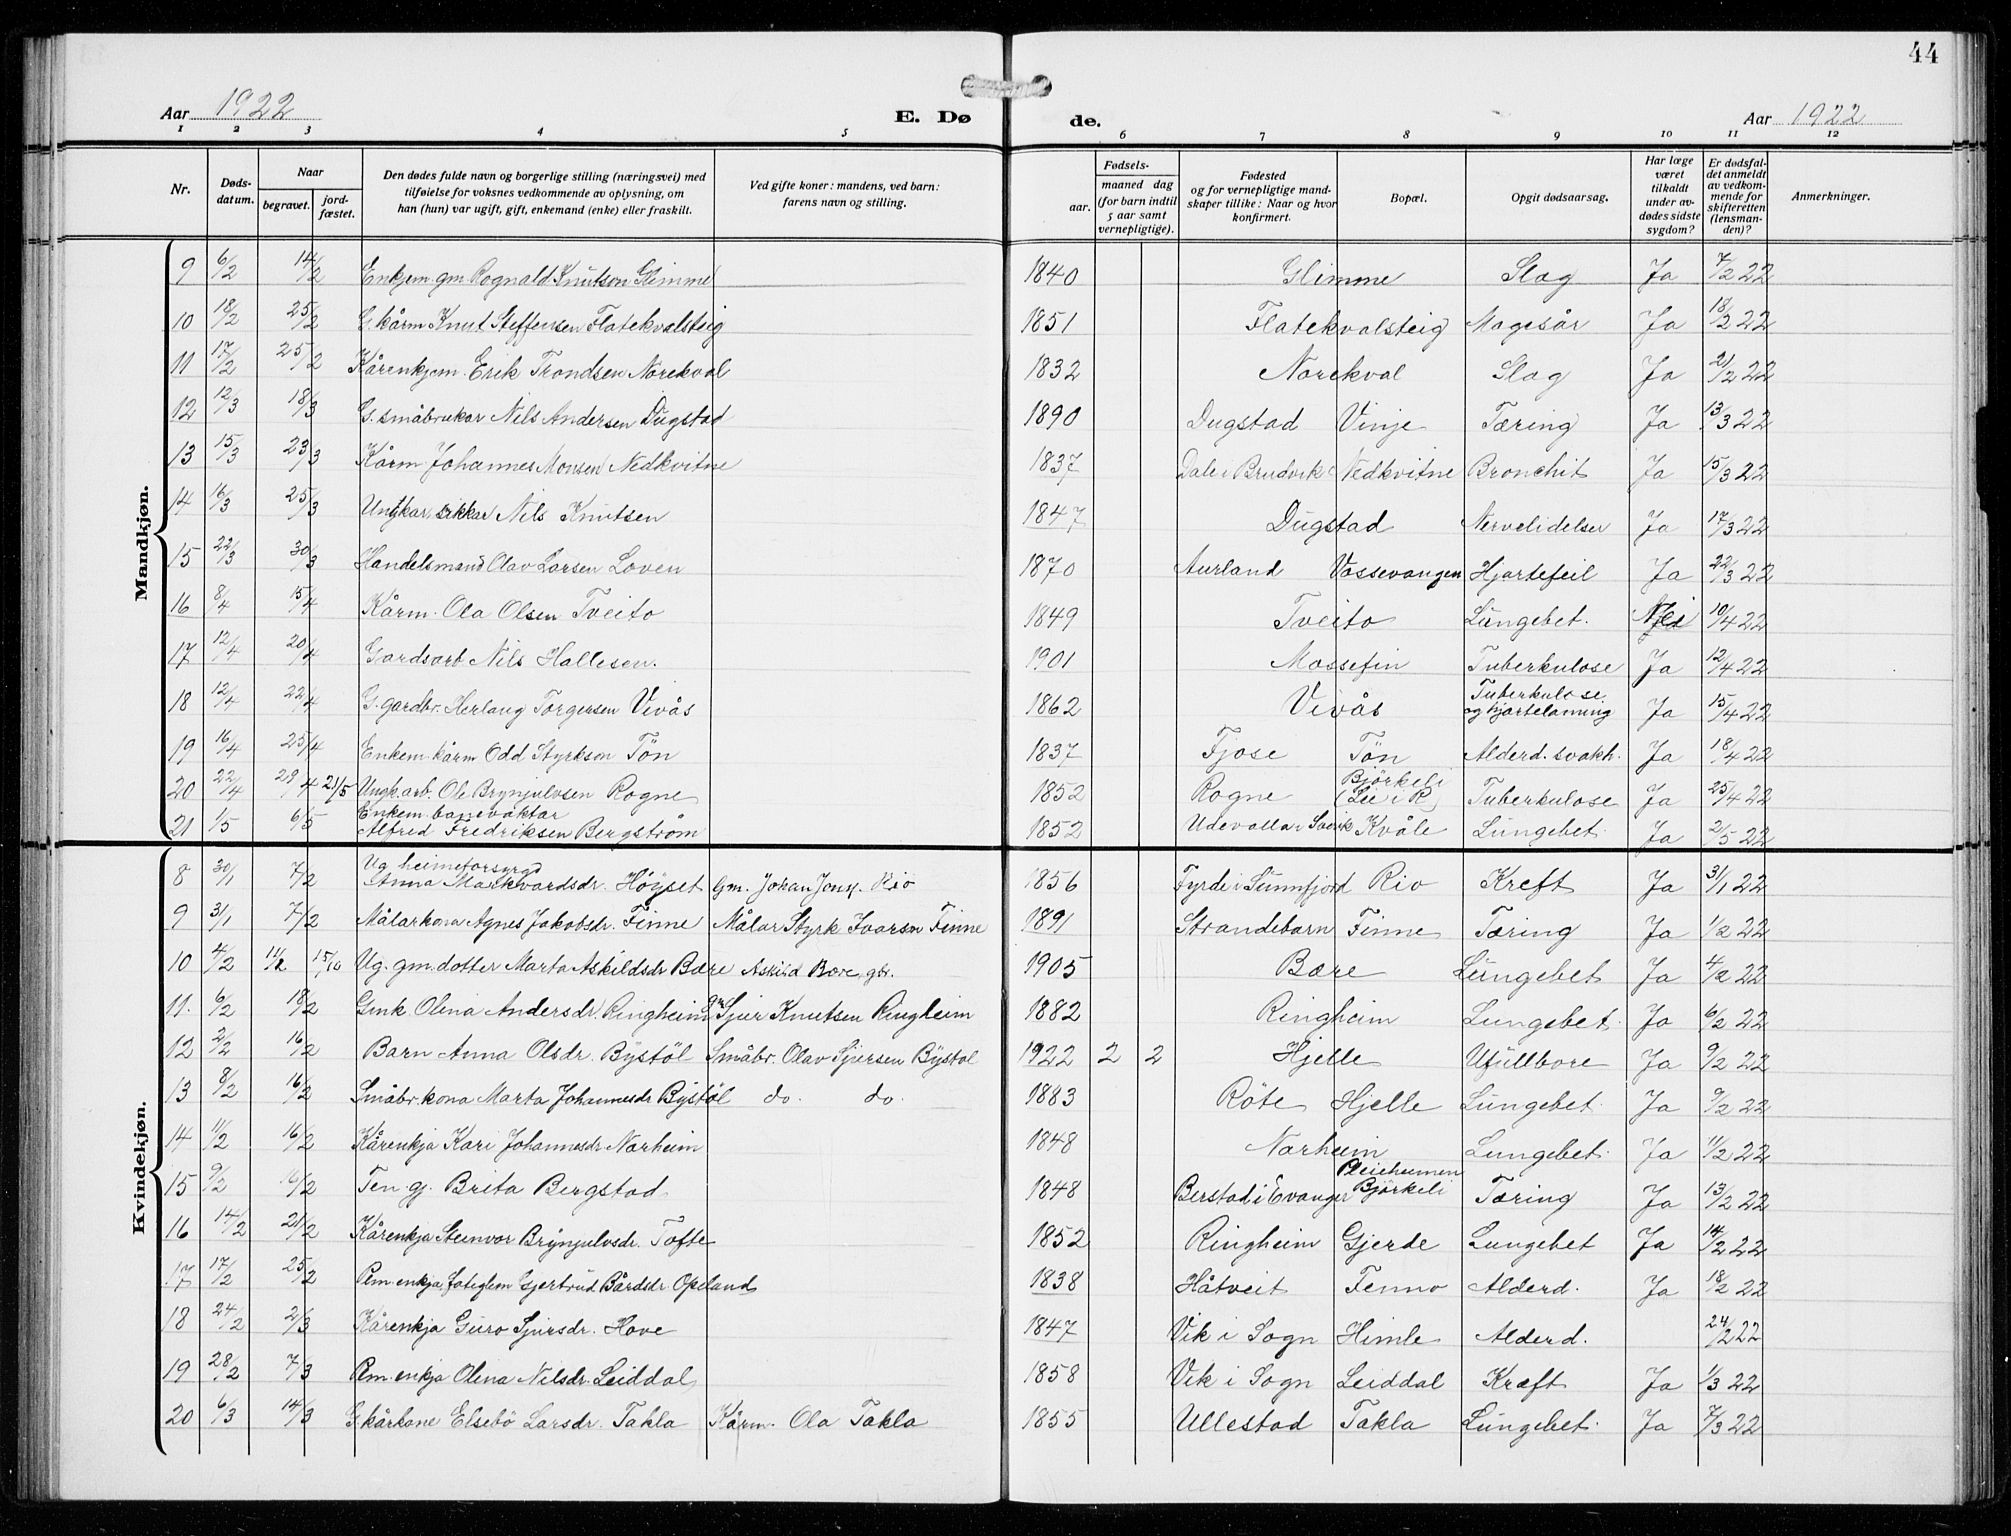 44
Aar 1922
E. Dø
de.
Aar 1922
1 2 3 4 5 6 7 8 9 10 11 12
Nr.
Døds-
datum.
Naar
begravet.
jord-
fæstet.
Den dødes fulde navn og borgerlige stilling (næringsvei) med
tilføielse for voksnes vedkommende av oplysning, om
han (hun) var ugift, gift, enkemand (enke) eller fraskilt.
Ved gifte koner: mandens, ved barn:
farens navn og stilling.
Fødsels-
aar.
maaned dag
(for barn indtil
5 aar samt
vernepligtige).
Fødested
og for vernepligtige mand-
skaper tillike: Naar og hvor
konfirmert.
Bopæl.
Opgit dødsaarsag.
Har læge
været
tilkaldt
under av-
dødes sidste
sygdom?
Er dødsfal-
det anmeldt
av vedkom-
mende for
skifteretten
(lensman-
den)?
Anmerkninger.
Mandkjøn.
9 6/2 14/2 Enkjem. gm Rognald Knutson Glimme 1840 Glimme Slag Ja 7/2 22
10 18/2 25/2 G. kårm Knut Steffensen Flatekvalsteig 1851 Flatekvalsteig Magesår Ja 18/2 22
11 17/2 25/2 Kårenkjem. Erik Trondsen Norekval 1832 Norekval Slag Ja 21/2 22
12 12/3 18/3 G. småbrukar Nils Andersen Dugstad 1890 Dugstad Vinje Tæring Ja 13/3 22
13 15/3 23/3 Kårm Johannes Monsen Nedkvitne 1837 Dale i Brudvik Nedkvitne Bronchit Ja 15/3 22
14 16/3 25/3 Ungkar, Nils Knutsen 1847 Dugstad Nervelidelser Ja 17/3 22
15 22/3 30/3 Handelsmand Olav Larsen Loven 1870 Aurland Vossevangen Hjartefeil Ja 22/3 22
16 8/4 15/4 Kårm. Ola Olsen Tveito 1849 Tveito Lungebet. Nei 10/4 22
17 12/4 20/4 Gardsarb Nils Hallesen. 1901 Mossefin Tuberkulose Ja 12/4 22
18 12/4 22/4 G. gardbr. Herlaug Torgersen Vivås 1862 Vivås Tuberkulose
og hjartelaming Ja 15/4 22
19 16/4 25/4 Enkem. kårm Odd Styrkson Tøn 1837 Fjose Tøn Alderd. svakh. Ja 18/4 22
20 22/4 29/4 21/5 Ungk. arb. Ole Brynjulvsen Rogne 1852 Rogne Bjørkeli
(Lie i R) Tuberkulose Ja 25/4 22
21 1/5 6/5 Enkem. banevaktar
Alfred Fredriksen Bergström 1852 Udevalla i Sverik Kvåle Lungebet. Ja 2/5 22
Kvindekjøn.
8 30/1 7/2 Ug. heimeforsyrgd
Anna Markvardsdr. Höyset Gm. Johan Jons. Rio 1856 Fyrde i Sunnfjord Rio Kreft Ja 31/1 22
9 31/1 7/2 Målarkona Agnes Jakobsdr. Finne Målar Styrk Ivarson Finne 1891 Strandebarn Finne Tæring Ja 1/2 22
10 4/2 11/2 15/10 Ug. gm. dotter Marta Askildsdr Bære Askild Bære, gbr. 1905 Bære Lungebet Ja 4/2 22
11. 6/2 18/2 Gmk. Olina Andersdr. Ringheim gm Sjur Knutsen Ringheim 1882 Ringheim Lungebet. Ja 6/2 22
12 2/2 16/2 Barn Anna Olsdr. Bystøl Småbr. Olav Sjursen Bystøl 1922 2 2 Hjelle Ufullbore Ja 9/2 22
13 8/2 16/2 Småbr.kona Marta Johannesdr Bystøl do. do. 1883 Röte Hjelle Lungebet. Ja 9/2 22
14 11/2 16/2 Kårenkja Kari Johannesdr Narheim 1848 Narheim Lungebet. Ja 11/2 22
15 9/2 16/2 Tengj. Brita Bergstad 1848 Berstad i Evanger Pleieheimen
Bjørkeli Tæring Ja 13/2 22
16 14/2 21/2 Kårenkja Steinvor Brynjulvsdr. Tofte 1852 Ringheim Gjerde Lungebet Ja 14/2 22
17 17/2 25/2 Pem. enkja, fatiglem Gjertrud Bårdsdr. Opeland 1838 Håtveit Tenno Alderd. Ja 18/2 22
18 24/2 2/3 Kårenkja Guro Sjursdr. Hove 1847 Vik i Sogn Himle Alderd. 24/2 22
19 28/2 7/3 Pem. enkja Olina Nilsdr. Leiddal 1858 Vik i Sogn Leiddal Kræft Ja 1/3 22
20 6/3 14/3 G. kårkone Elsebö Larsdr. Takla Kårm. Ola Takla 1855 Ullestad Takla Lungebet. Ja 7/3 22